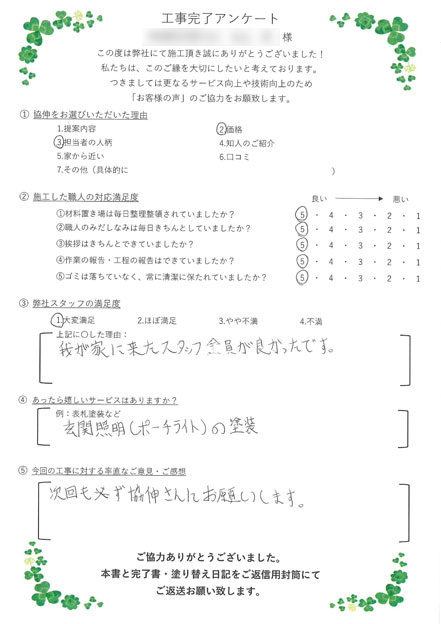 工事完了アンケート
様
この度は弊社にて施工頂き誠にありがとうございました！
私たちは、このご縁を大切にしたいと考えております。
つきましては更なるサービス向上や技術向上のため
「お客様の声」のご協力をお願い致します。
① 協伸をお選びいただいた理由
1.提案内容 2.価格
3.担当者の人柄 4.知人のご紹介
5.家から近い 6.口コミ
7.その他（具体的に ）
② 施工した職人の対応満足度 良い 悪い
①材料置き場は毎日整理整頓されていましたか？ 5 ・ 4 ・ 3 ・ 2 ・ 1
②職人のみだしなみは毎日きちんとしていましたか？ 5 ・ 4 ・ 3 ・ 2 ・ 1
③挨拶はきちんとできていましたか？ 5 ・ 4 ・ 3 ・ 2 ・ 1
④作業の報告・工程の報告はできていましたか？ 5 ・ 4 ・ 3 ・ 2 ・ 1
⑤ゴミは落ちていなく、常に清潔に保たれていましたか？ 5 ・ 4 ・ 3 ・ 2 ・ 1
③ 弊社スタッフの満足度
1.大変満足 2.ほぼ満足 3.やや不満 4.不満
上記に〇した理由：
我が家に来たスタッフ全員が良かったです。
④ あったら嬉しいサービスはありますか？
例：表札塗装など
玄関照明(ポーチライト)の塗装
⑤ 今回の工事に対する率直なご意見・ご感想
次回も必ず協伸さんにお願いします。
ご協力ありがとうございました。
本書と完了書・塗り替え日記をご返信用封筒にて
ご返送お願い致します。